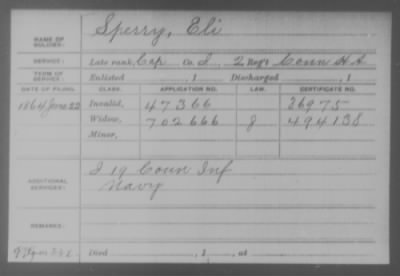 NAME OF SOLDIER: Sperry, Eli
SERVICE: Late rank, Cap Co. I, 2 Reg't Conn H A
TERM OF SERVICE: Enlisted , 1 Discharged , 1
DATE OF FILING. CLASS. APPLICATION NO. LAW. CERTIFICATE NO.
1864 June 22 Invalid, 47366 36975
Widow, 702666 g 494138
Minor,
ADDITIONAL SERVICES: I 19 Conn Inf
Navy
REMARKS:
Died , 1 , at